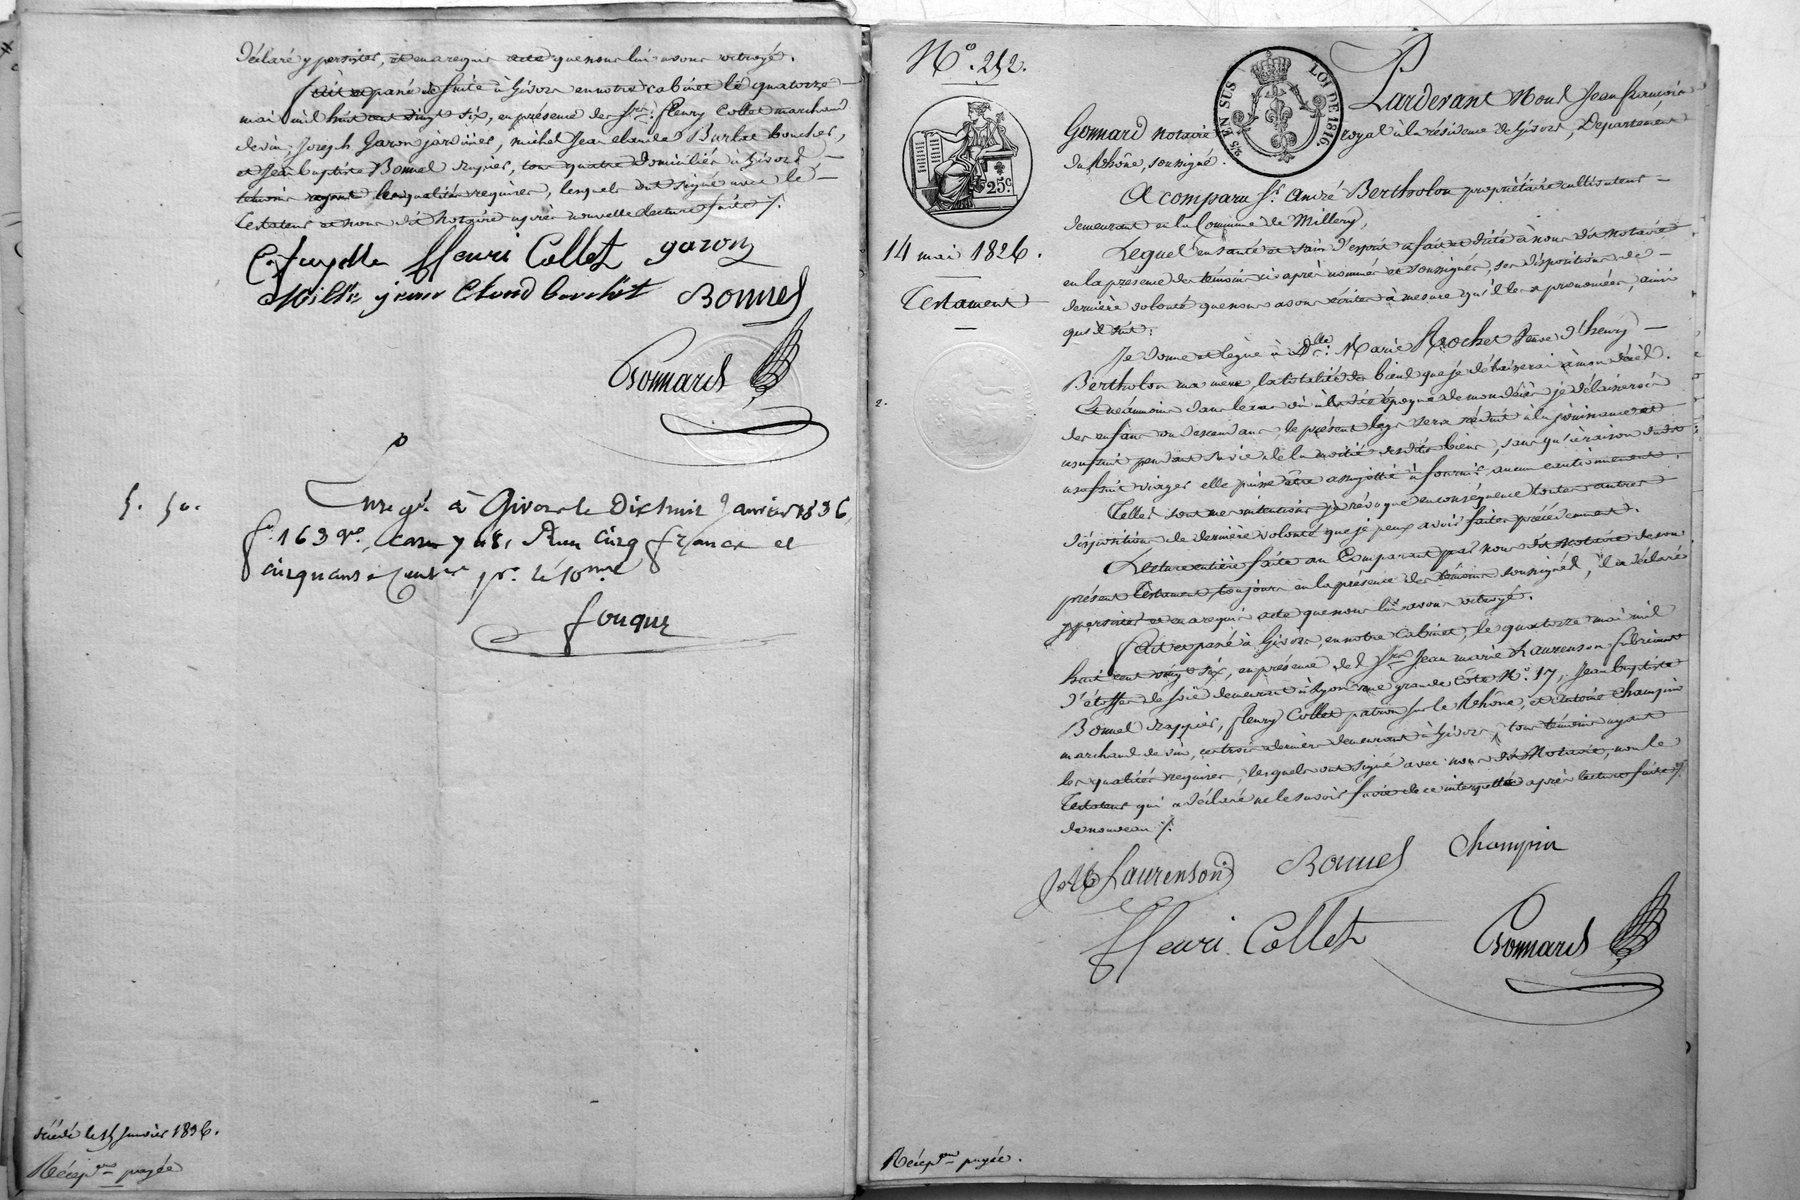 déclaré y persister, et en a requis acte que nous lui avons octroyé.
fait et passé de suite à Givors en notre cabinet le quatorze
mai mil huit cent vingt six, en présence des Srs. fleury Collet marchand
de vin, Joseph Garon jardinier, michel Jean claude Burlat boucher,
et Jean baptiste Bonnel drapier, tous quatre domiciliés à Givors,
témoins ayant les qualités requises, lesquels ont signé avec le
testateur et nous dit Notaire après nouvelle lecture faite ./.
fleuri Collet garon
Bonnel
Gonnard
5. 50.
Enregé. à Givors le Dix huit Janvier 1836,
fo. 163 Vo. case 7 et 8, Reçu cinq francs et
cinquante centes pr. le 10eme
fouque
décédé le 15 Janvier 1836.
Récepon payée
No. 252.
25c
5/15 EN SUS
LOI DE 1816.
14 mai 1826.
Testament
Pardevant Nous Jean françois
Gonnard notaire royal à la résidence de Givors, Département
du Rhône, soussigné.
A comparu Sr. André Bertholon propriétaire cultivateur
demeurant en la Commune de Millery,
Lequel en santé et sain d'esprit a fait et dicté à nous dit notaire
en la présence des témoins ci après nommés et soussignés, ses dispositions de
dernière volonté que nous avons écrites à mesure qu'il les a prononcées, ainsi
qu'il suit:
Je donne et lègue à Delle. Marie Rochet veuve d'henry
Bertholon ma mère, la totalité des biens que je délaisserai à mon décès.
Et néanmoins dans le cas où à la dite époque de mon décès je délaisserais
des enfans ou descendans, le présent legs sera réduit à la jouissance et
usufruit pendant sa vie de la moitié desdits biens, sans qu'à raison dudit
usufruit viager elle puisse être assujettie à fournir aucun cautionnement.
Telles sont mes intentions je révoque en conséquence toutes autres
dispositions de dernière volonté que je peux avoir faites précédemment.
Lecture entière faite au Comparant par nous dit notaire de son
présent testament, toujours en la présence des témoins soussignés, il a déclaré
y persister et en a requis acte que nous lui avons octroyé.
fait et passé à Givors, en notre Cabinet, le quatorze mai mil
huit cent vingt six, en présence des Srs Jean marie Laurenson fabricant
d'étoffes de soie demeurant à Lyon rue grande Côte No. 17, Jean baptiste
Bonnel drapier, fleury Collet patron sur le Rhône, et antoine champin
marchand de vin, ces trois derniers demeurant à Givors, tous témoins ayant
les qualités requises, lesquels ont signé avec nous dit Notaire, non le
testateur qui a déclaré ne le savoir faire de ce interpellé après lecture faite
de nouveau ./.
J M Laurenson Bonnel Champin
fleuri Collet Gonnard
Récepon payée.